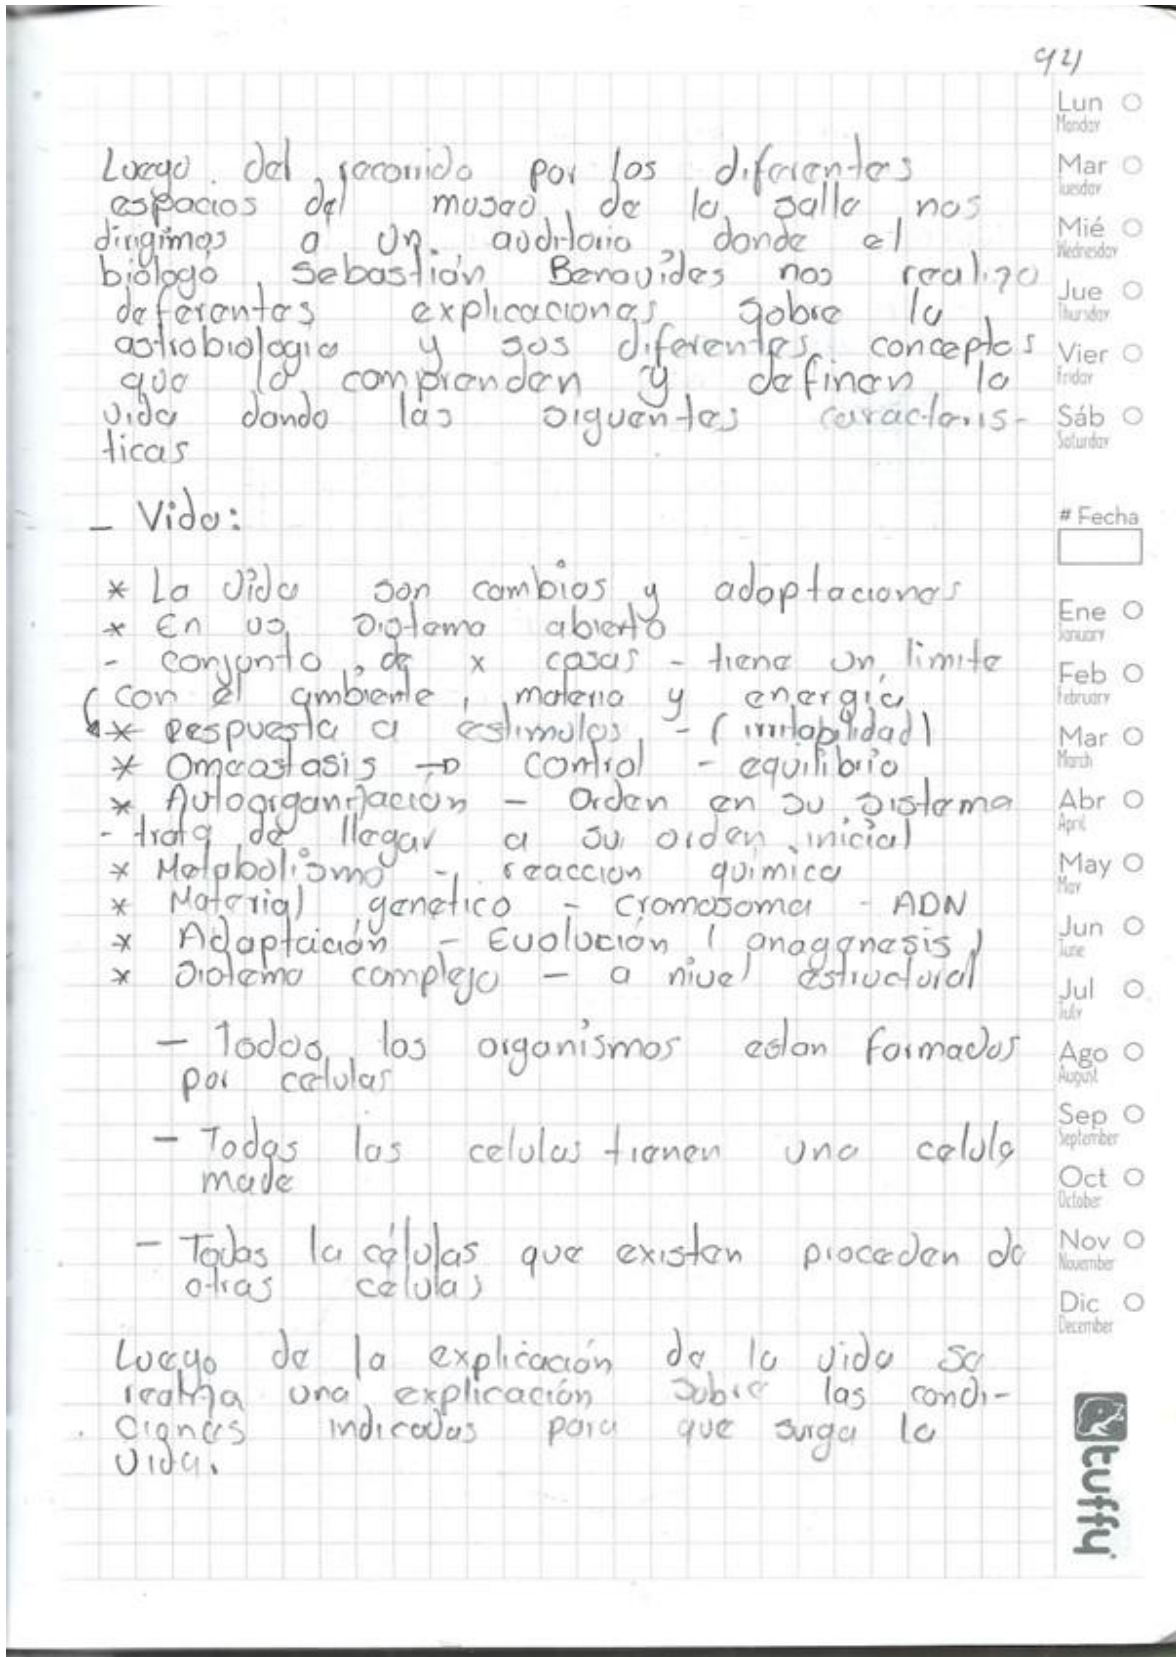 921
Luego del recorrido por los diferentes
espacios del museo de la salle nos
dirigimos a un auditorio, donde el
biólogo Sebastián Benavides nos realizo
deferentes explicaciones sobre la
astrobiologia y sus diferentes conceptos
que lo comprenden y definen la
vida dando las siguentes caracteris-
ticas
- Vida:
* La vida son cambios y adaptaciones
* En us sistema abierto
- conjunto de x cosas - tiene un limite
con el ambiente, materia y energía
* Respuesta a estimulos - (irritabilidad)
* Omeostasis → control - equilibrio
* Autoorganización - Orden en su sistema
- trata de llegar a su orden inicial
* Metabolismo - reaccion quimica
* Material genetico - cromosoma - ADN
* Adaptación - Evolución (anagenesis)
* Sistema complejo - a nivel estructural
- Todos los organismos estan formados
por celulas
- Todas las celulas tienen una celula
made
- Todas la células que existen proceden de
otras celulas
Luego de la explicación de la vida se
realiza una explicación sobre las condi-
ciones indicadas para que surga la
vida.
Lun
Monday
Mar
Tuesday
Mié
Wednesday
Jue
Thursday
Vier
Friday
Sáb
Saturday
# Fecha
Ene
January
Feb
February
Mar
March
Abr
April
May
May
Jun
June
Jul
July
Ago
August
Sep
September
Oct
October
Nov
November
Dic
December
tuffy